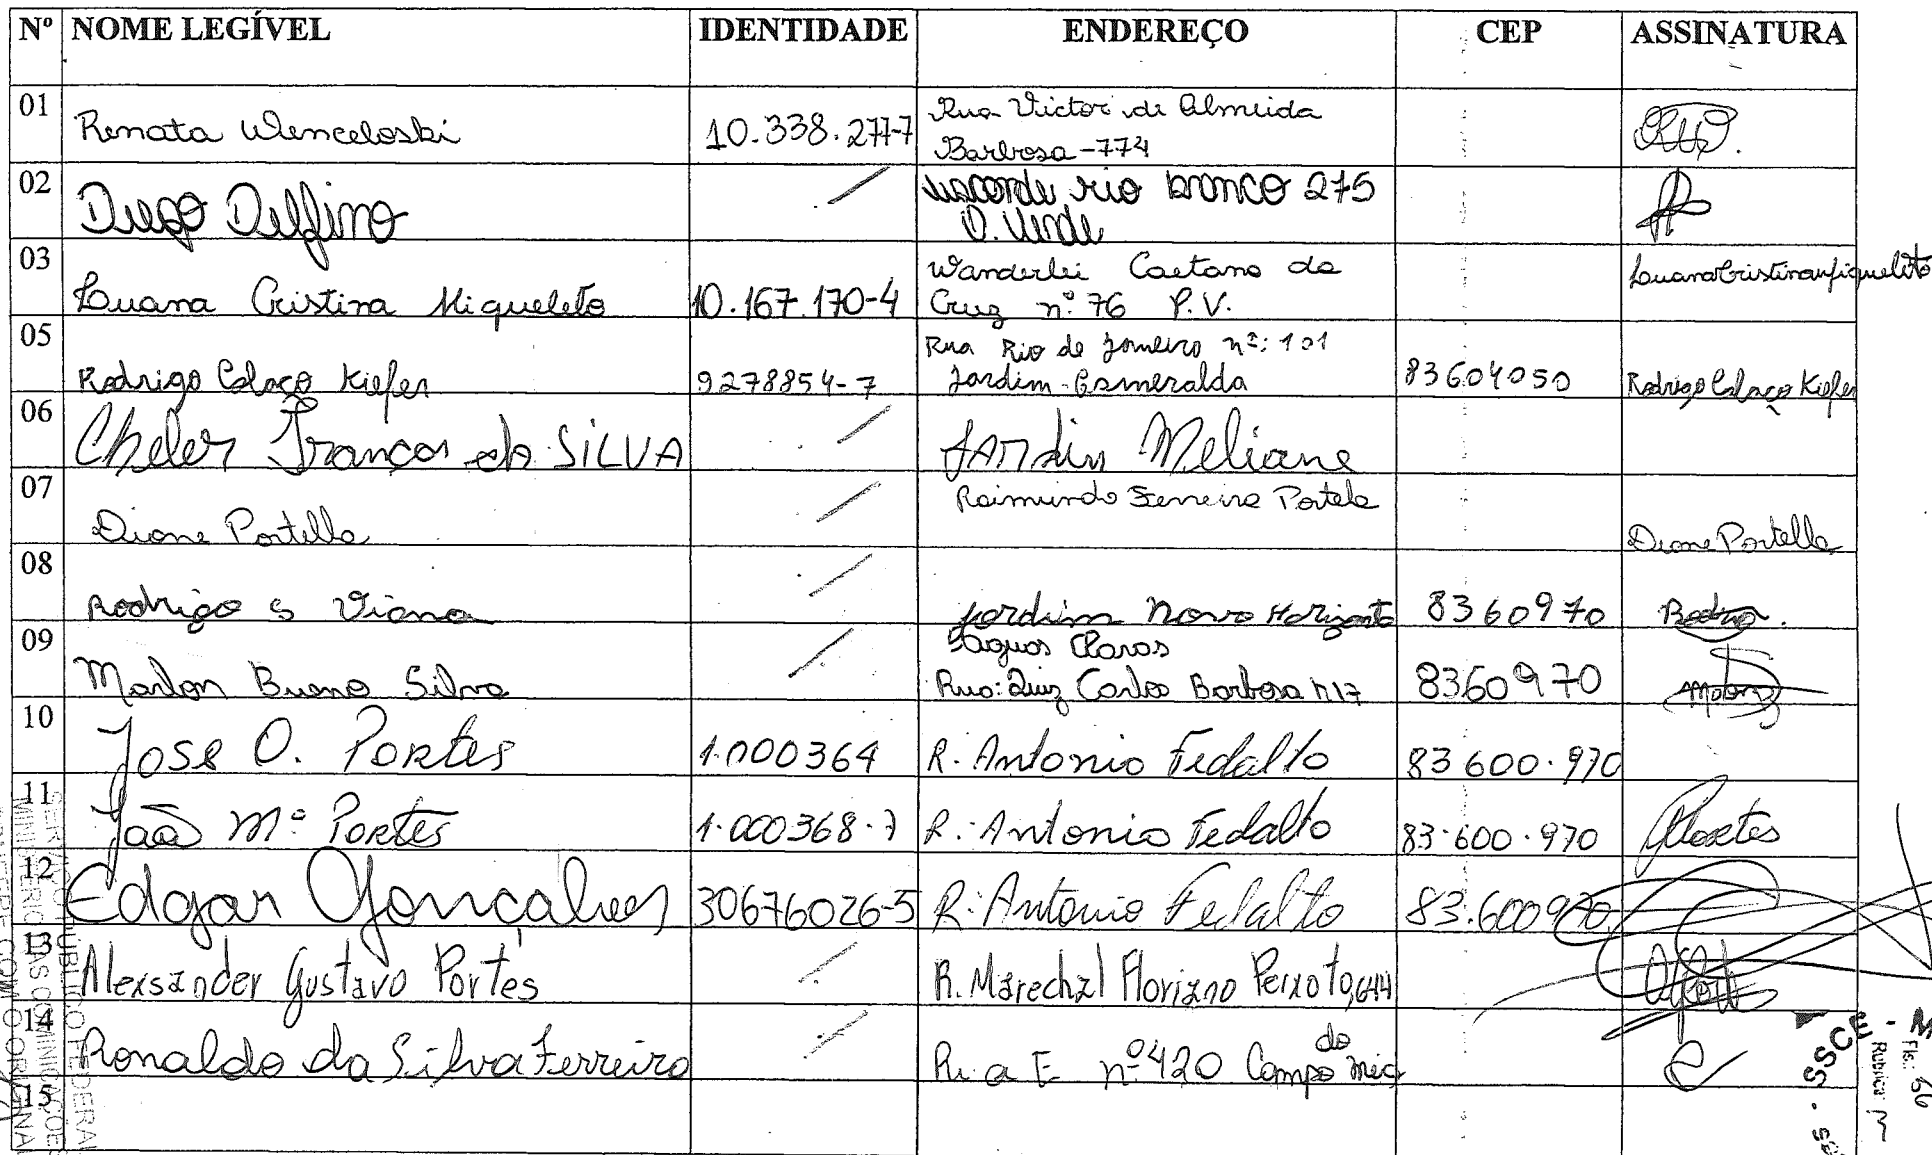 Nº NOME LEGÍVEL IDENTIDADE ENDEREÇO CEP ASSINATURA
01 Renata Wenceloski 10.338.277-7 Rua Victor de Almeida
Barbosa - 774
02 Diego Delfino / visconde rio branco 275
O. Verde
03 Luana Cristina Miqueleto 10.167.170-4 Wanderlei Caetano da
Cruz nº 76 P.V. Luana Cristina Miqueleto
05 Rodrigo Colaço Kiefer 9278854-7 Rua Rio de Janeiro nº: 101
Jardim Esmeralda 83604050 Rodrigo Colaço Kiefer
06 França da SILVA / JArdin Meliane
07 Dione Portella / Raimundo Ferreira Portela Dione Portella
08 Rodrigo S Viana / Jardim Novo Horizonte 8360970 Rodrigo
09 Marlon Bueno Silva / Laguos Claros
Rua: Luiz Carlos Barbosa n17 8360970
10 Jose O. Portes 1.000364 R. Antonio Fedalto 83600.970
11 João Mª Portes 1.000368.7 R. Antonio Fedalto 83.600.970 JPortes
12 Edgar Gonçalves 30676026-5 R. Antonio Fedalto 83.600970
13 Alexsander Gustavo Portes / R. Marechal Floriano Peixoto, 644
14 Ronaldo da Silva Ferreira / Rua E nº 420 Campo do Meio
15
SERVIÇO PÚBLICO FEDERAL
MINISTÉRIO DAS COMUNICAÇÕES
CONFERE COM O ORIGINAL
SSCE
Fls.: 66
Rubrica